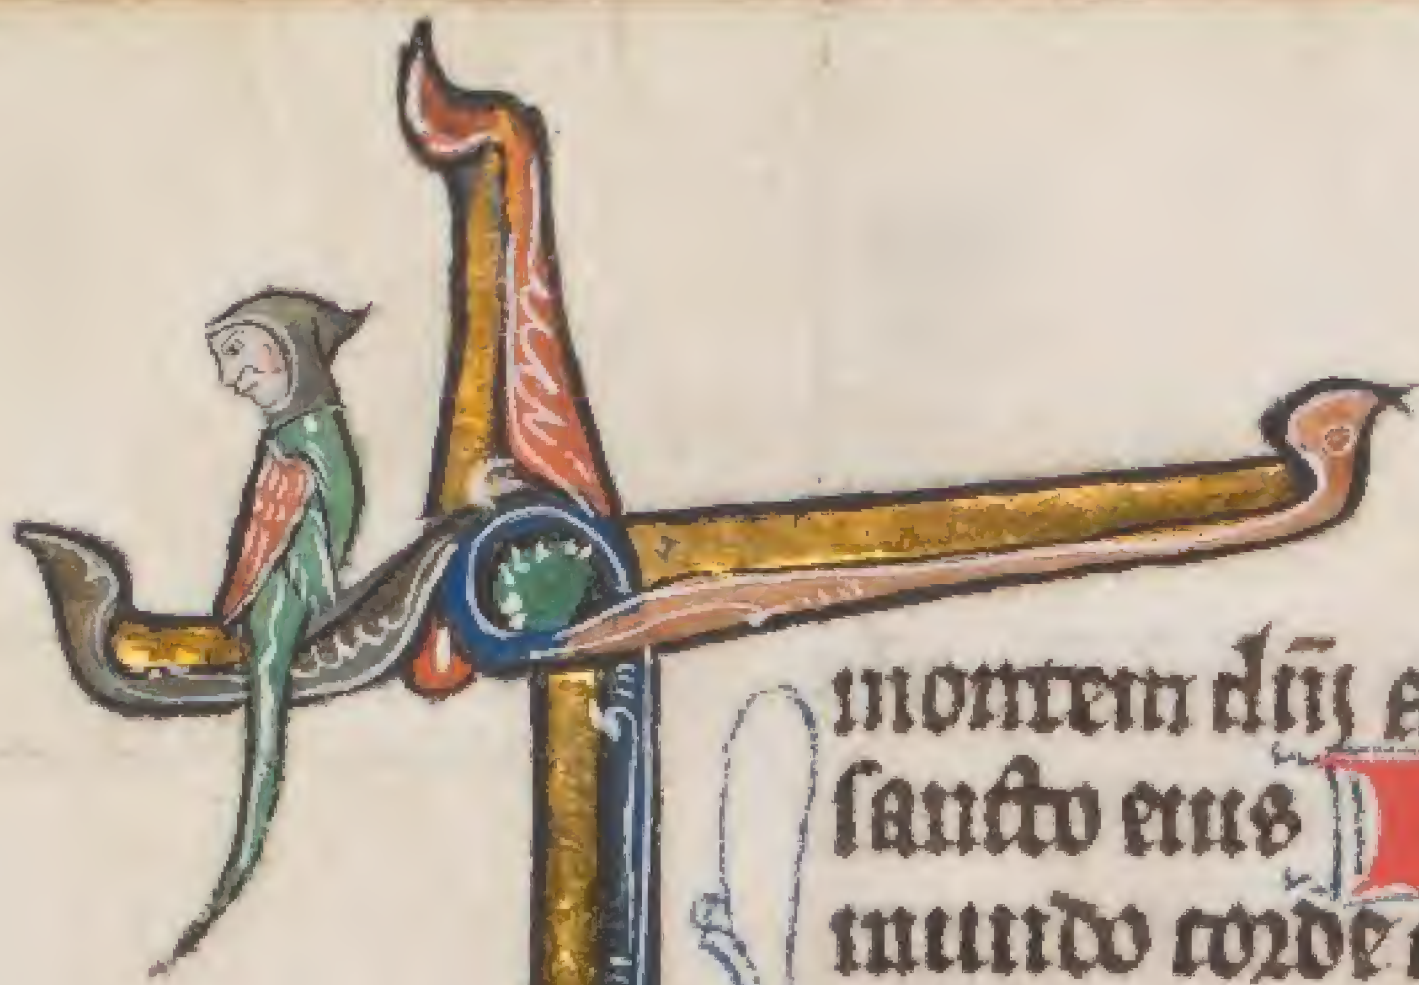 montem dn̄j
sancto eius
mundo corde